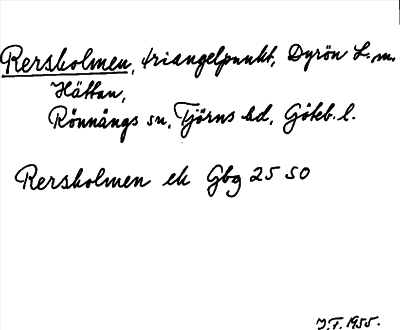 Rersholmen, triangelpunkt, Dyrön L. m.
Hättan,
Rönnängs sn, Tjörns hd, Göteb. l.
Rersholmen ek Gbg 25 SO
J.F. 1955.